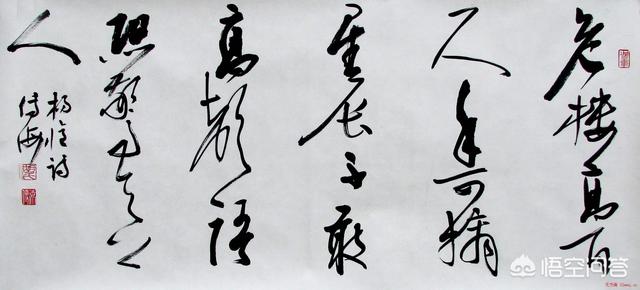 危楼高百
尺手可摘
星辰不敢
高声语
恐惊天上
人
悟空问答